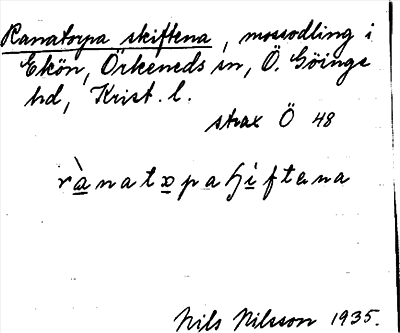 Ranatorpa skiftena, mossodling i
Ekön, Örkeneds sn, Ö. Göinge
hd, Krist. l.
strax Ö 48
rànatorpa ʃiftəna
Nils Nilsson 1935.